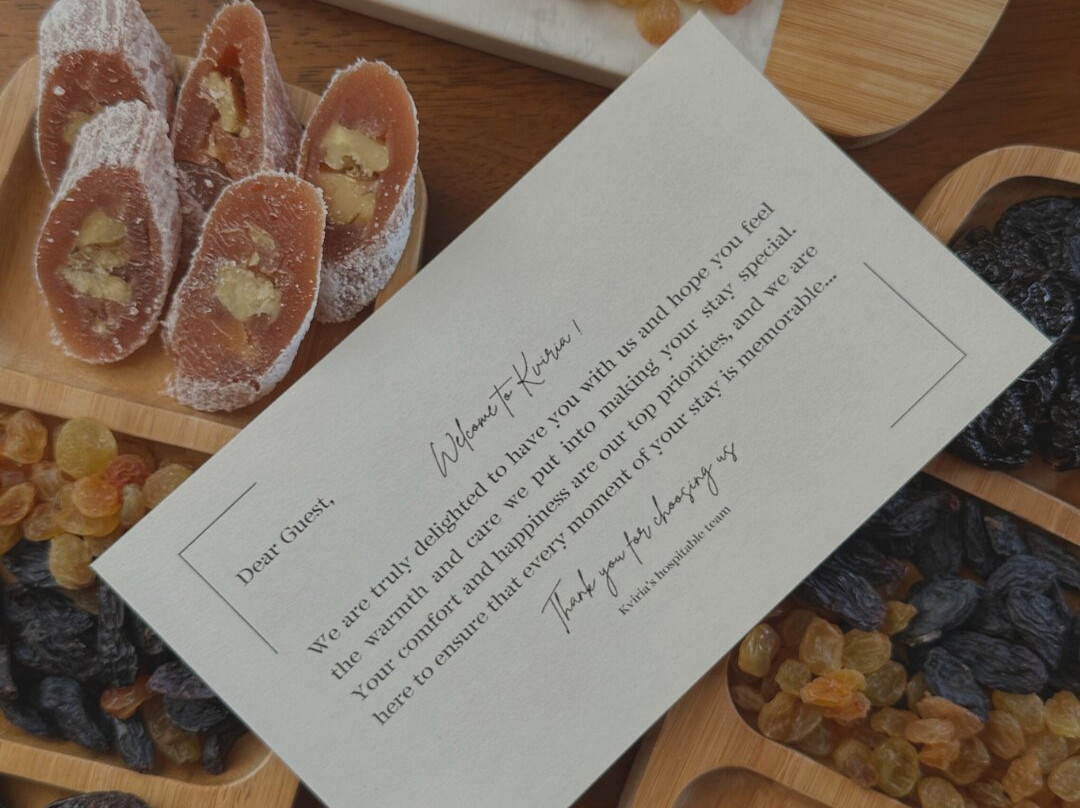 Dear Guest,
Welcome to Kviria !
We are truly delighted to have you with us and hope you feel
the warmth and care we put into making your stay special.
Your comfort and happiness are our top priorities, and we are
here to ensure that every moment of your stay is memorable...
Thank you for choosing us
Kviria's hospitable team